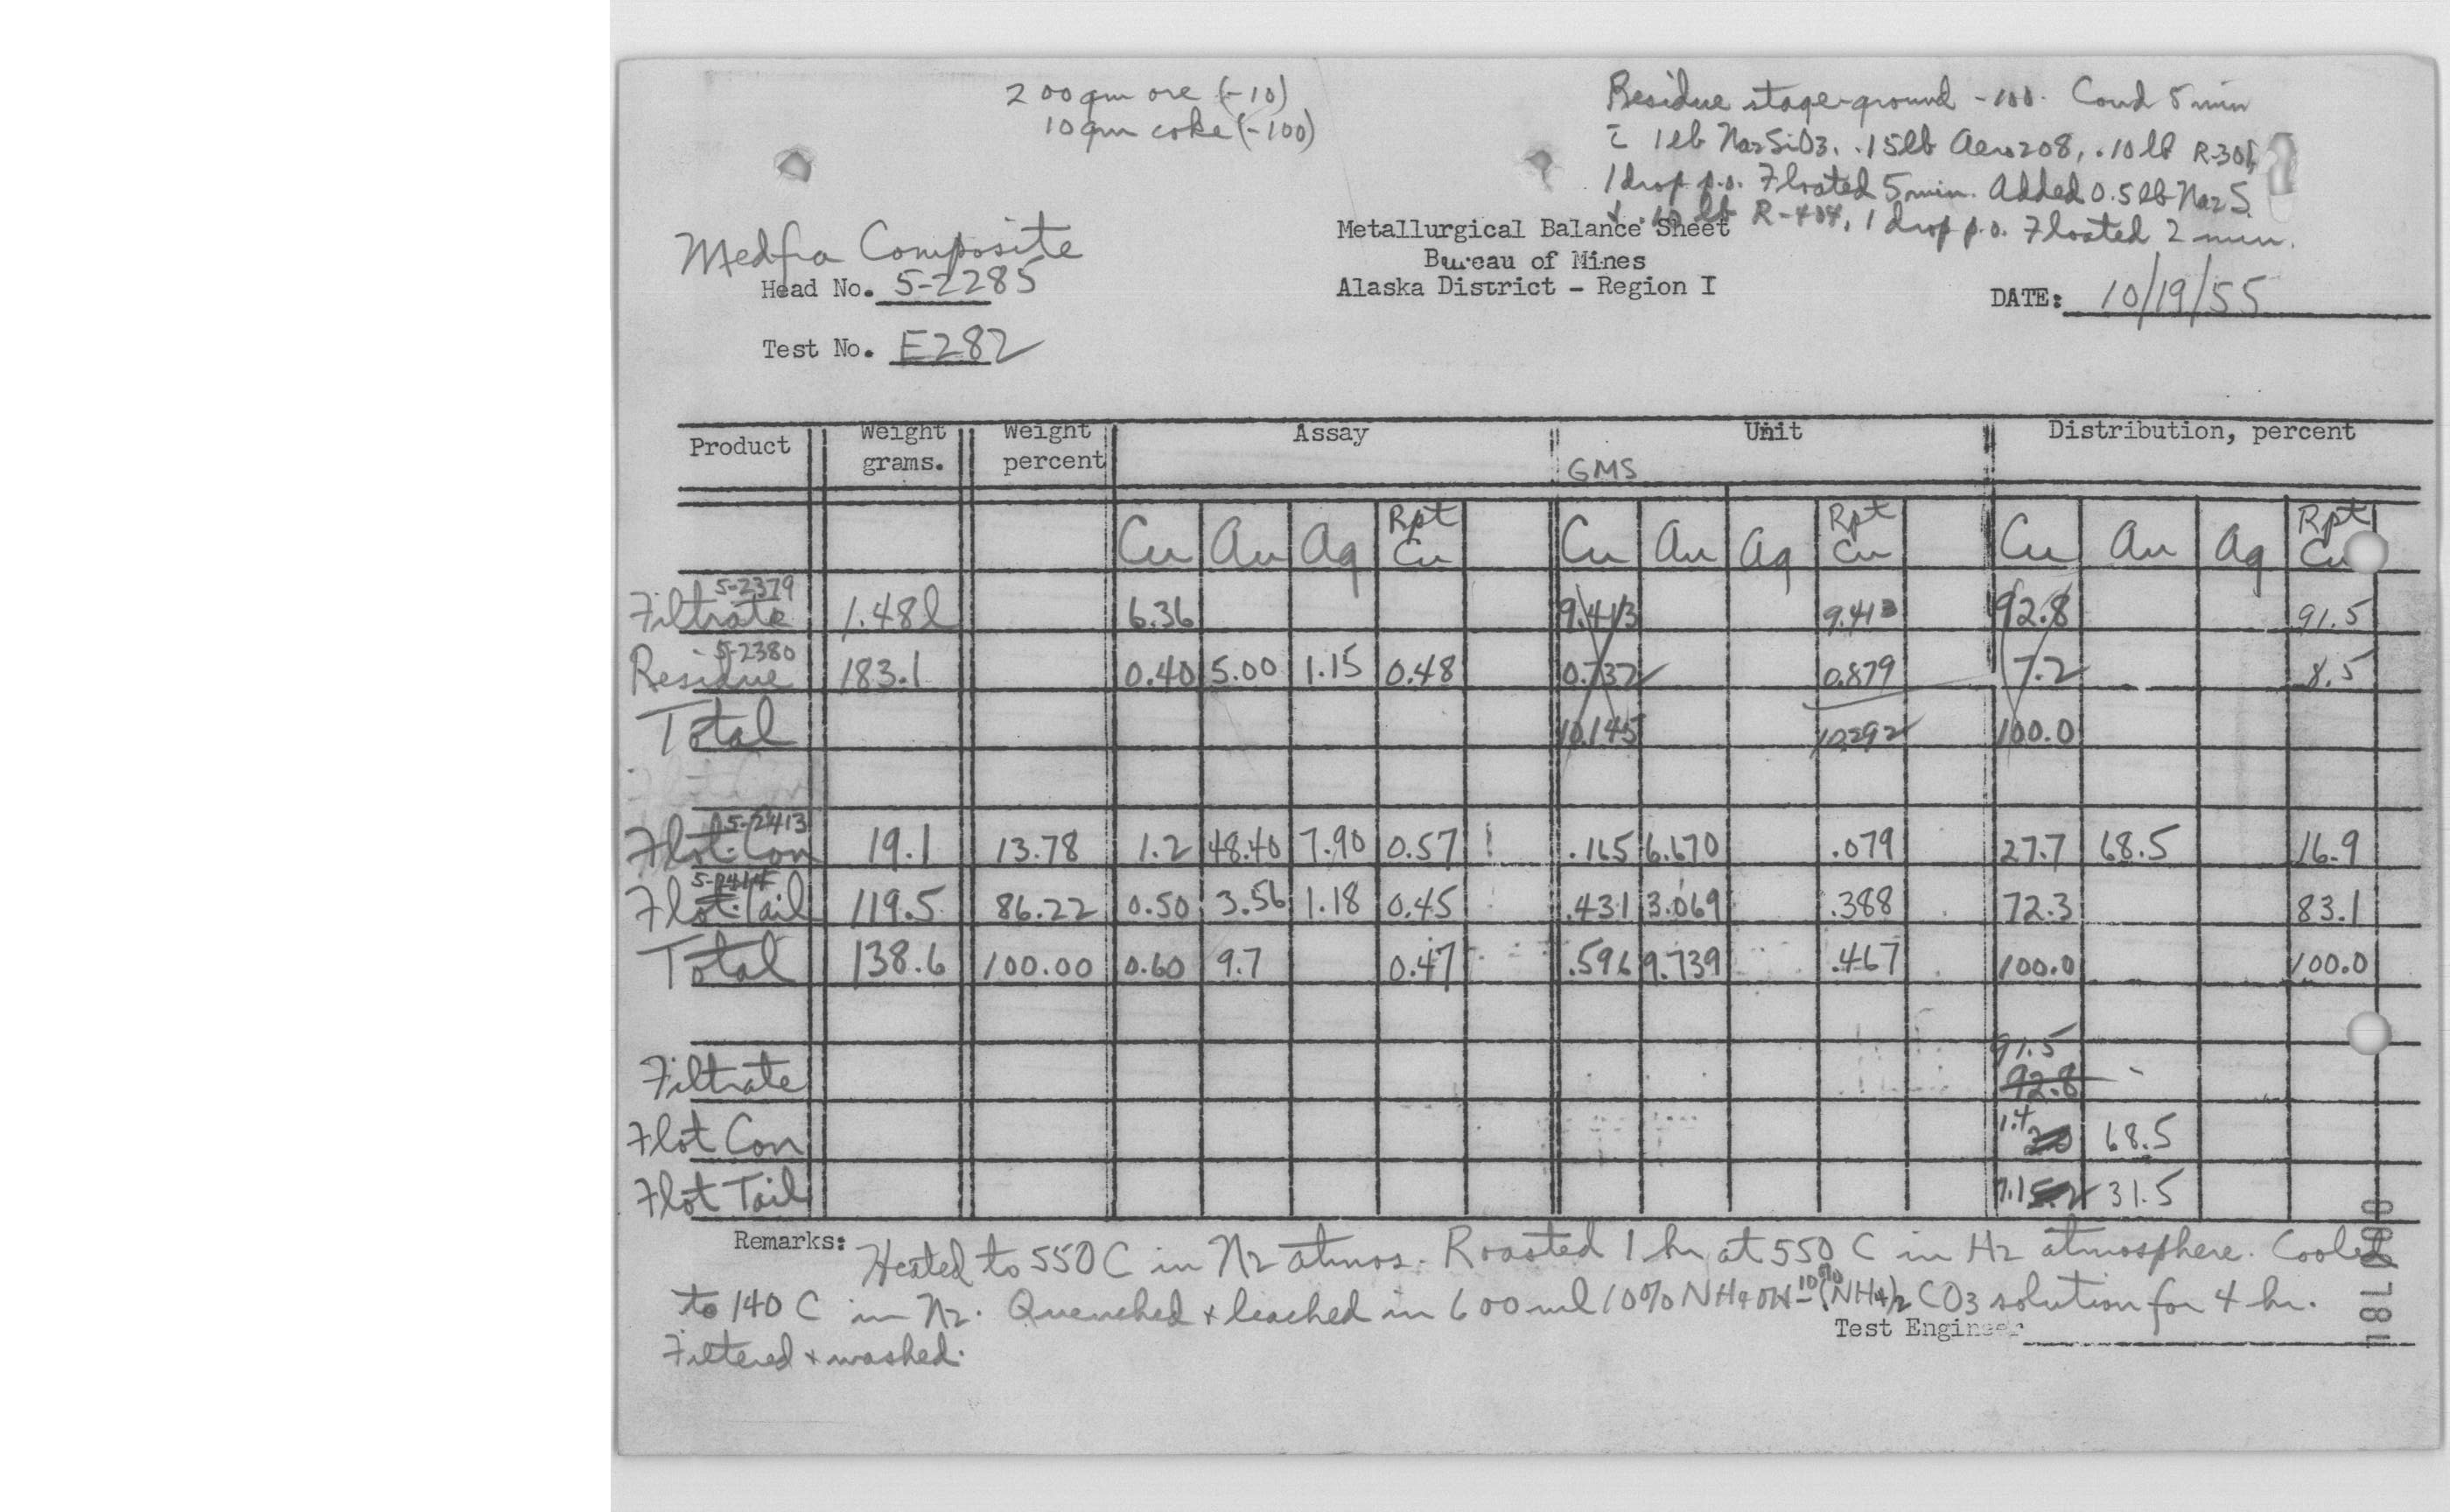 200 gm ore (-10)
10 gm coke (-100)
Residue stage-ground -100. Cond 5 min
c̄ 1 lb Na2SiO3, .15 lb Aero 208, .10 lb R-301,
1 drop p.o. Floated 5 min. Added 0.5 lb Na2S
+ .10 lb R-404, 1 drop p.o. Floated 2 min.
Medfra Composite
Head No. 5-2285
Test No. E282
Metallurgical Balance Sheet
Bureau of Mines
Alaska District - Region I
DATE: 10/19/55
Product Weight grams. Weight percent Assay Unit Distribution, percent
GMS
Cu Au Ag Rpt Cu Cu Au Ag Rpt Cu Cu Au Ag Rpt Cu
5-2379
Filtrate 1.48 l 6.36 9.413 9.413 92.8 91.5
5-2380
Residue 183.1 0.40 5.00 1.15 0.48 0.732 0.879 7.2 8.5
Total 10.145 10.292 100.0
5-2413
Flot. Con 19.1 13.78 1.2 48.40 7.90 0.57 .165 6.670 .079 27.7 68.5 16.9
5-2414
Flot. Tail 119.5 86.22 0.50 3.56 1.18 0.45 .431 3.069 .388 72.3 83.1
Total 138.6 100.00 0.60 9.7 0.47 .596 9.739 .467 100.0 100.0
91.5
Filtrate 92.8 -
Flot Con 1.4 68.5
Flot Tail 7.1 31.5
Remarks: Heated to 550 C in N2 atmos. Roasted 1 hr at 550 C in H2 atmosphere. Cooled
to 140 C in N2. Quenched + leached in 600 ml 10% NH4OH - 10% (NH4)2 CO3 solution for 4 hr.
Test Engineer
Filtered + washed.